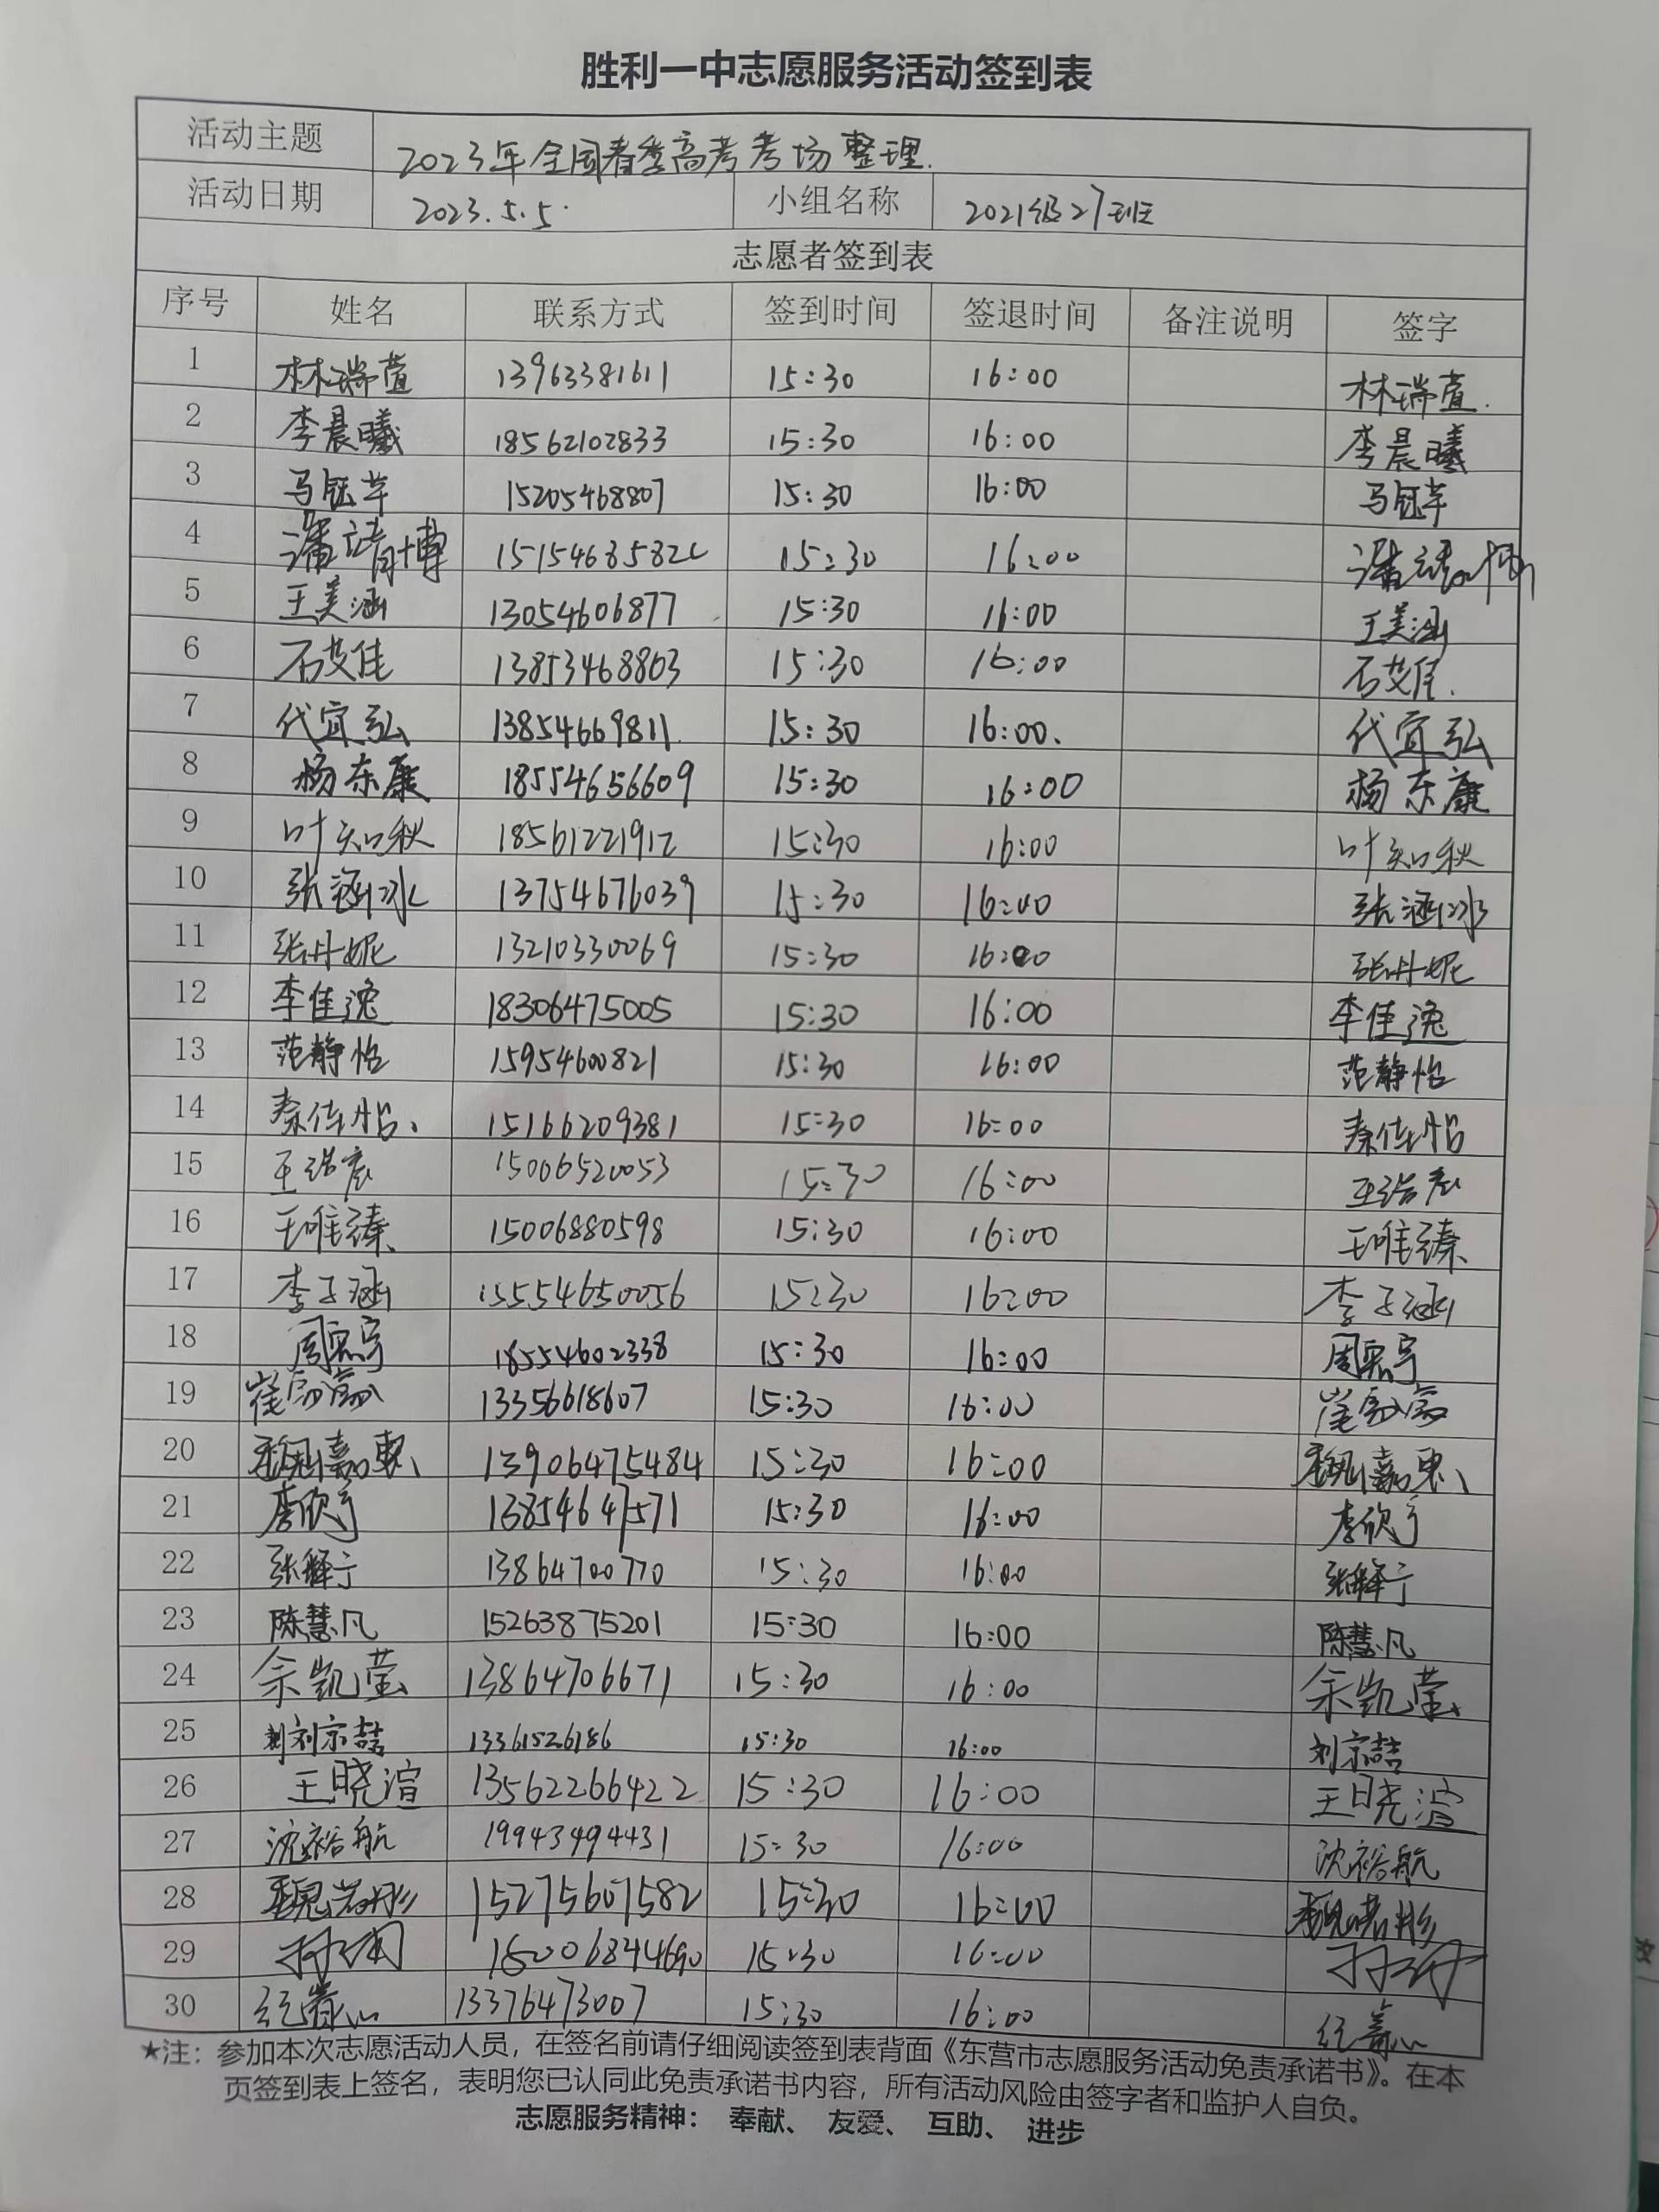 胜利一中志愿服务活动签到表
活动主题 2023年全国春季高考考场整理.
活动日期 2023.5.5. 小组名称 2021级27班
志愿者签到表
序号 姓名 联系方式 签到时间 签退时间 备注说明 签字
1 林瑞萱 13963381611 15:30 16:00 林瑞萱.
2 李晨曦 18562102833 15:30 16:00 李晨曦
3 马钰芊 15205468807 15:30 16:00 马钰芊
4 潘靖博 15:30 16:00
5 王美涵 13054606877 15:30 16:00 王美涵
6 石艾佳 13853468863 15:30 16:00 石艾佳.
7 代宜弘 13854669811 15:30 16:00. 代宜弘
8 杨东康 18554656609 15:30 16:00 杨东康
9 叶知秋 18561221912 15:30 16:00 叶知秋
10 张涵冰 13754676039 15:30 16:00 张涵冰
11 张丹妮 13210330069 15:30 16:00 张丹妮
12 李佳逸 18306475005 15:30 16:00 李佳逸
13 范静怡 15954600821 15:30 16:00 范静怡
14 秦佳怡、 15166209381 15:30 16:00 秦佳怡
15 15006520053 15:30 16:00
16 王唯臻、 15006880598 15:30 16:00 王唯臻、
17 李子涵 15554650056 15:30 16:00 李子涵
18 18554602338 15:30 16:00
19 13356618607 15:30 16:00
20 魏嘉惠、 13906475484 15:30 16:00 魏嘉惠、
21 李欣宁 13854647571 15:30 16:00 李欣宁
22 张释宁 13864700770 15:30 16:00 张释宁
23 陈慧凡 15263875201 15:30 16:00 陈慧凡
24 余凯莹 13864706671 15:30 16:00 余凯莹
25 刘京喆 13361526186 15:30 16:00 刘京喆
26 王晓渲 13562266422 15:30 16:00 王晓渲
27 沈裕航 19943494431 15:30 16:00 沈裕航
28 15275607582 15:30 16:00
29 15:30 16:00
30 13376473007 15:30 16:00
★注：参加本次志愿活动人员，在签名前请仔细阅读签到表背面《东营市志愿服务活动免责承诺书》。在本
页签到表上签名，表明您已认同此免责承诺书内容，所有活动风险由签字者和监护人自负。
志愿服务精神： 奉献、 友爱、 互助、 进步